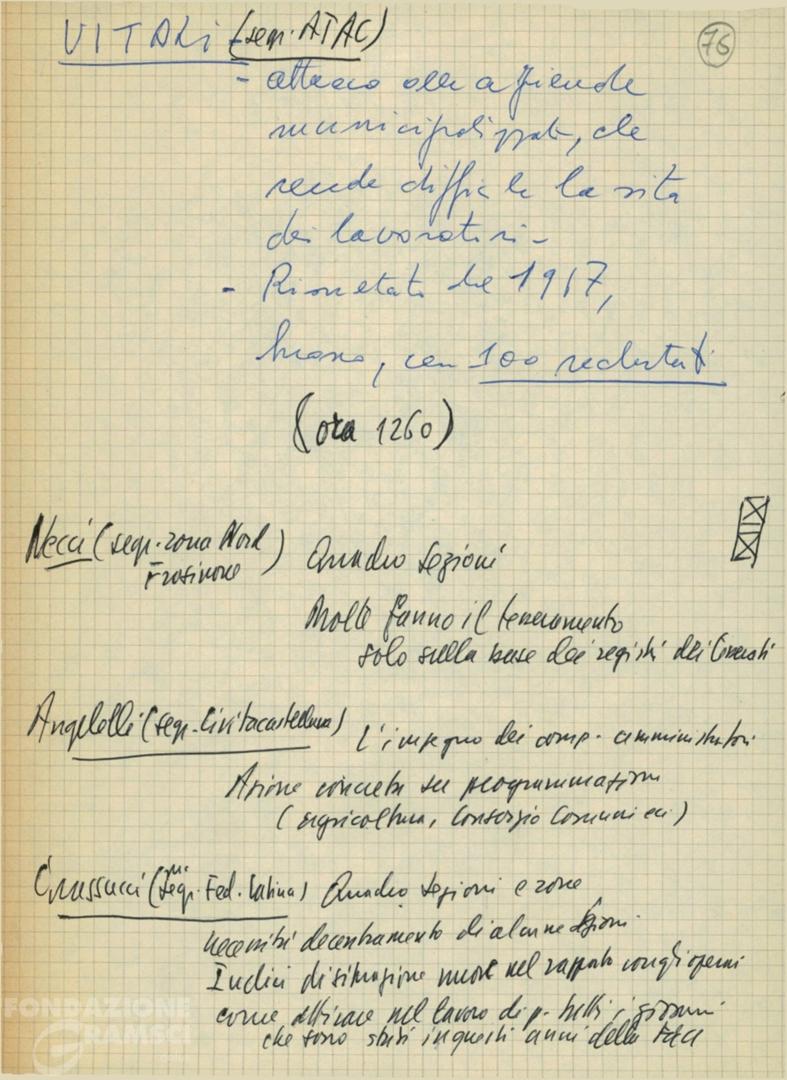 76
VITALI (segr. ATAC)
- attacco alle aziende
municipalizzate, che
rende difficile la vita
dei lavoratori -
- Risultati del 1967,
buono, con 100 reclutati
(ora 1260)
Necci (segr. zona Nord
Frosinone) Quadro sezioni
Molte fanno il tesseramento
solo sulla base dei registri dei
Angelelli (segr. Civitacastellana) L'impegno dei comp. amministratori
Azione concreta su programmazione
(agricoltura, Consorzio Comuni ecc)
(Segr. Fed. Latina) Quadro sezioni e zone
necessità decentramento di alcune sezioni
Indici di situazione nuove nel rapporto con gli operai
come attirare nel lavoro di p. tutti i giovani
che sono stati in questi anni della FGCI
FONDAZIONE
GRAMSCI